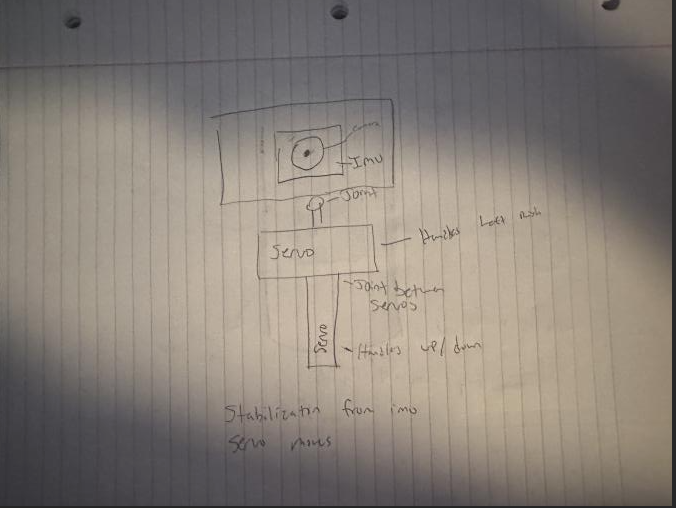 camera
Imu
Joint
Servo
Handles Left
Joint between
servos
Servo
Handles up/down
Stabilization from imu
Servo moves